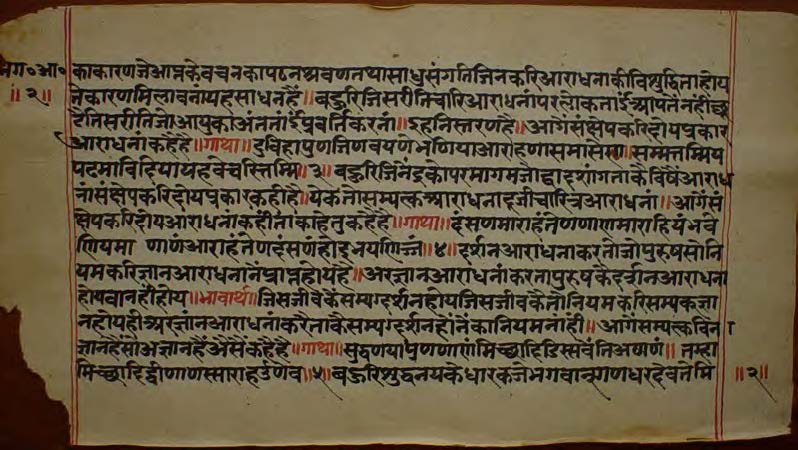 भग॰आ॰ काकारणजेआप्तकेवचनकापठनश्रवणतथासाधुसंगतिजिनकरिआराधनाकीविशुद्धिताहोय
॥२॥ तेकारणमिलावनांयहसाधनहै॥ बहुरिजिसरीतिचारिआराधनांपरलोकतांई
रैतिसरीतिजोआयुकाअंततांईप्रवर्तिकरनां॥ इहनिस्तरणहै॥ आगेंसंक्षेपकरिदोयप्रकार
आराधनांकहैहै॥गाथा॥ दुविहापुणजिणवयणेभणियाआराहणासमासेण॥ सम्मत्तम्मिय
पढमाबिदियायहवेचरित्तम्मि॥३॥ बहुरिजिनेंद्रकोपरमागमजोद्वादशांगताकेविषेंआराध
नांसंक्षेपकरिदोयप्रकारकहीहै॥ येकतोसम्यत्कआराधनादूजीचारित्रआराधनां॥ आगेंसं
क्षेपकरिदोयआराधनांकहीतांकाहेतुकहैहै॥गाथा॥ दंसणमाराहंतेणणाणमाराहियंभवे
णियमा णाणंआराहंतेणदंसणंहोइभयणिज्जं॥४॥ दर्शनआराधनाकरतोजोपुरुषसोनि
यमकरिज्ञानआराधनानेंप्राप्तहोयहै॥ अरज्ञानआराधनांकरतापुरुषकेदर्शनआराधना
होयवानहींहोय॥भावार्थ॥जिसजीवकेंसम्यग्दर्शनहोयजिसजीवकैतोनियमकरिसम्यकज्ञा
नहोयहीअरज्ञांनआराधनांकरैताकैसम्यग्दर्शनहोंनेंकानियमनांही॥ आगेंसम्यत्कविना
ज्ञानहैसोअज्ञानहैऐसेंकहैहै॥गाथा॥ सुद्धणयापुणणाणंमिच्छादिट्ठिस्सवेंतिअण्णाणं॥ तम्हा
मिच्छादिट्ठीणाणस्साराहउणेव॥५॥ बहुरिशुद्धनयकेधारकजेभगवान्गणधरदेवतेमि ॥२॥